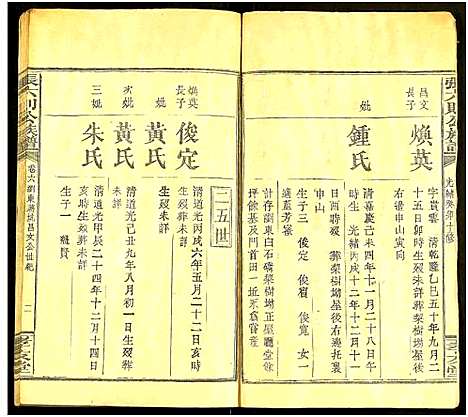 張六則公族譜
光緒癸卯十修
昌文
長子
煥英
字貴雲 清乾隆乙巳五十年九月二
十五日卯時生歿葬未詳葬梨樹塅屋
右儋申山寅向
妣
鍾氏
清嘉慶己未四年十一月二十八日午
時生 光緒丙子二年十二月初一
日酉時歿 葬梨樹塅星右邊托義
山申
適藍芳
子三 俊定 俊賓 俊寬 女一
計存瀏東白石礄梨樹塅正屋廳堂
坪餘基及門首田一坵為嘗產
二五世
煥英
長子
俊定
清道光丙戌六年五月二十二日亥時
生歿葬未詳
妣
黃氏
次妣
黃氏
清道光己丑九年八月初一日生歿葬
未詳
三妣
朱氏
清道光甲辰二十四年十二月十四日
亥時生歿葬未詳
生子一 聽賢
張六則公族譜
卷六瀏東蔣埆昌文公世系
二
孝友堂